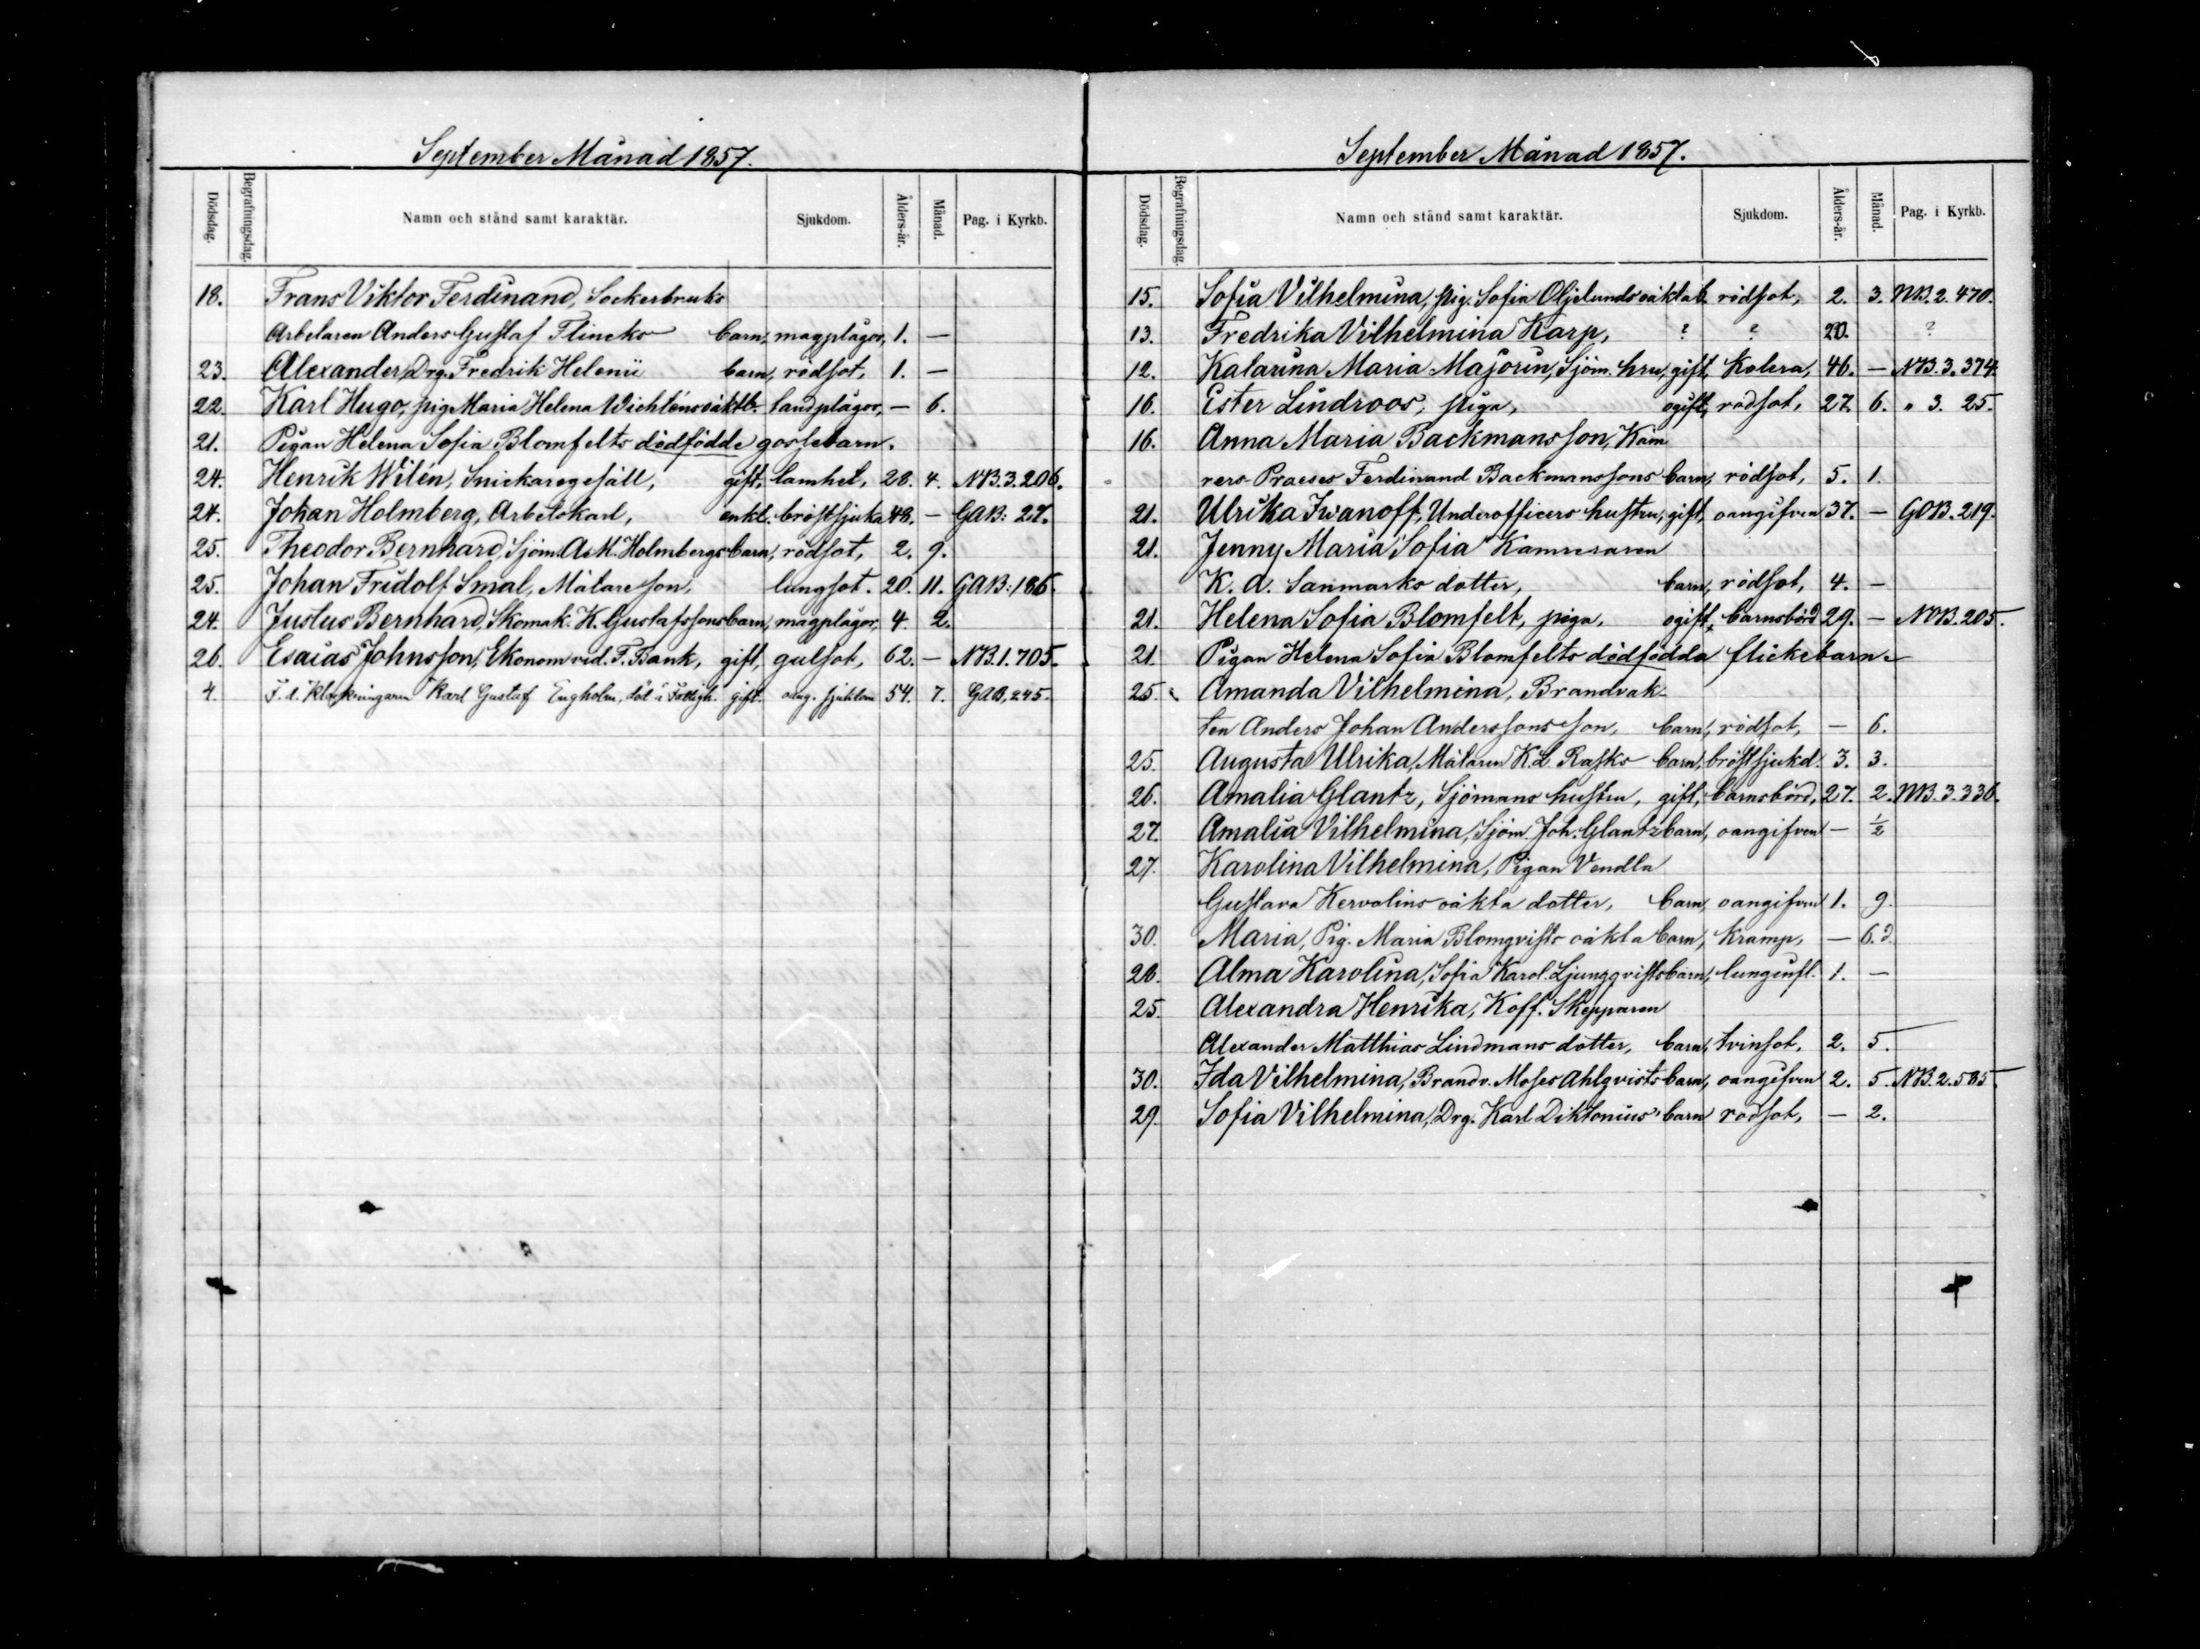 September Månad 1857.
Dödsdag. Begrafningsdag. Namn och stånd samt karaktär. Sjukdom. Ålders-år. Månad. Pag. i Kyrkb.
18. Frans Viktor Ferdinand, Sockerbruks
Arbetaren Anders Gustaf Flincks barn, magplågor, 1. —
23. Alexander, Drg. Fredrik Helenii barn, rödsot, 1. —
22. Karl Hugo, pig. Maria Helena Wichténs oäkt b. tandplågor, — 6.
21. Pigan Helena Sofia Blomfelts dödfödde gossebarn.
24. Henrik Wilén, Snickaregesäll, gift, lamhet, 28. 4. NB. 3. 206.
24. Johan Holmberg, Arbetskarl, enkl. bröstsjuka 48. — GAB: 27.
25. Theodor Bernhard, Sjöm. A. M. Holmbergs barn, rödsot, 2. 9.
25. Johan Fridolf Smal, Målareson, lungsot. 20. 11. GAB: 186.
24. Justus Bernhard, Skomak. K. Gustafssons barn, magplågor, 4. 2.
26. Esaias Johnsson, Ekonom vid F. Bank, gift, gulsot, 62. — NB. 1. 705.
4. F. d. Klockringaren Karl Gustaf Engholm, gift. oang. sjukdom 54. 7. GAB, 245.
September Månad 1857.
Dödsdag. Begrafningsdag. Namn och stånd samt karaktär. Sjukdom. Ålders-år. Månad. Pag. i Kyrkb.
15. Sofia Vilhelmina, pig. Sofia Oljelunds oäkta b. rödsot, 2. 3. NB. 2. 470.
13. Fredrika Vilhelmina Karp, ? ? 20. ?
12. Katarina Maria Majorin, Sjöm. hru, gift, Kolera, 46. — NB. 3. 374.
16. Ester Lindroos, piga, ogift, rödsot, 27. 6. " 3. 25.
16. Anna Maria Backmansson, Kam
rers Praeses Ferdinand Backmanssons barn, rödsot, 5. 1.
21. Ulrika Iwanoff, Underofficers hustru, gift, oangifven 37. — GOB. 219.
21. Jenny Maria Sofia Kamreraren
K. A. Sanmarks dotter, barn, rödsot, 4. —
21. Helena Sofia Blomfelt, piga, ogift, barnsbörd 29. — NOB. 205.
21. Pigan Helena Sofia Blomfelts dödfödda flickebarn.
25. Amanda Vilhelmina, Brandvak
ten Anders Johan Anderssons son, barn, rödsot, — 6.
25. Augusta Ulrika, Målaren K. L. Rasks barn, bröstsjukd. 3. 3.
26. Amalia Glantz, Sjömans hustru, gift, barnsbörd, 27. 2. NB. 3. 336.
27. Amalia Vilhelmina, Sjöm. Joh. Glantz barn, oangifven — 1/2
27. Karolina Vilhelmina, Pigan Vendla
Gustava Kervolins oäkta dotter, barn, oangifven 1. 9.
30. Maria, Pig. Maria Blomqvists oäkta barn, Kramp, — 6. d.
20. Alma Karolina, Sofia Karol. Ljungqvists barn, lunginfl. 1. —
25. Alexandra Henrika, Koff. Skepparen
Alexander Matthias Lindmans dotter, barn, tvinsot, 2. 5.
30. Ida Vilhelmina, Brandv. Moses Ahlqvists barn, oangifven 2. 5. NB. 2. 585.
29. Sofia Vilhelmina, Drg. Karl Diktonius' barn rödsot, — 2.